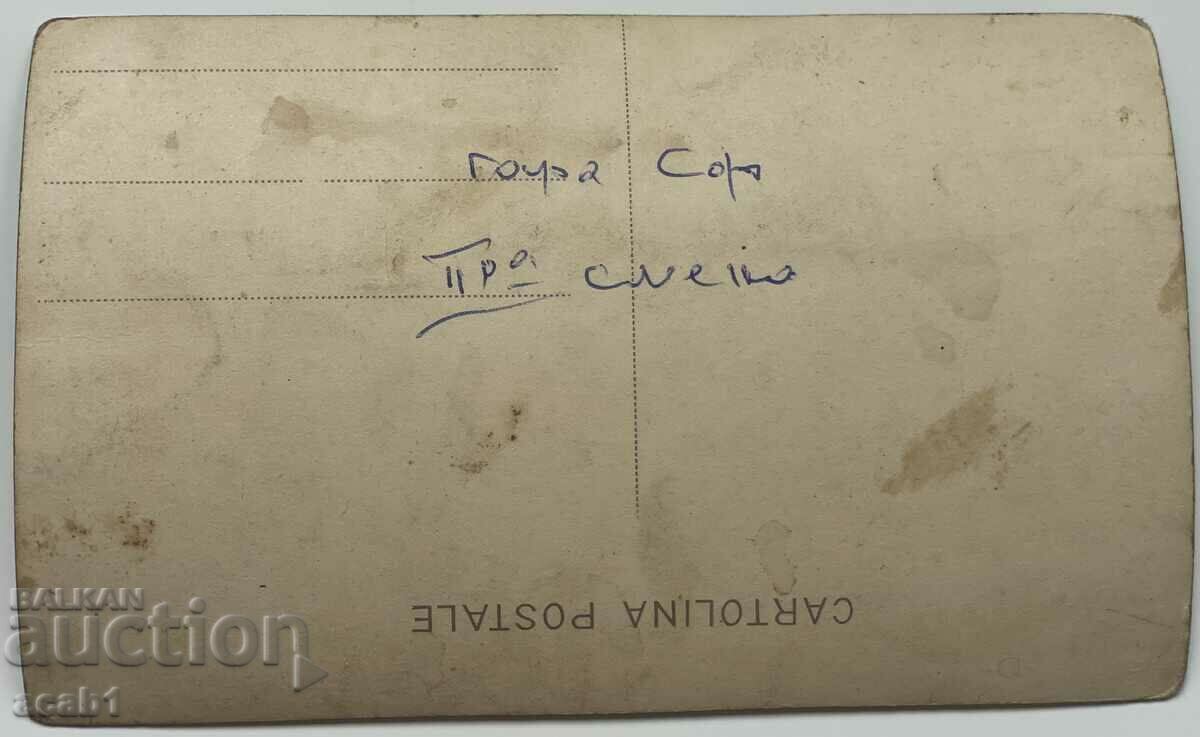 гоура Сор
IIра сметка
CARTOLINA POSTALE
BALKAN
auction
acab1